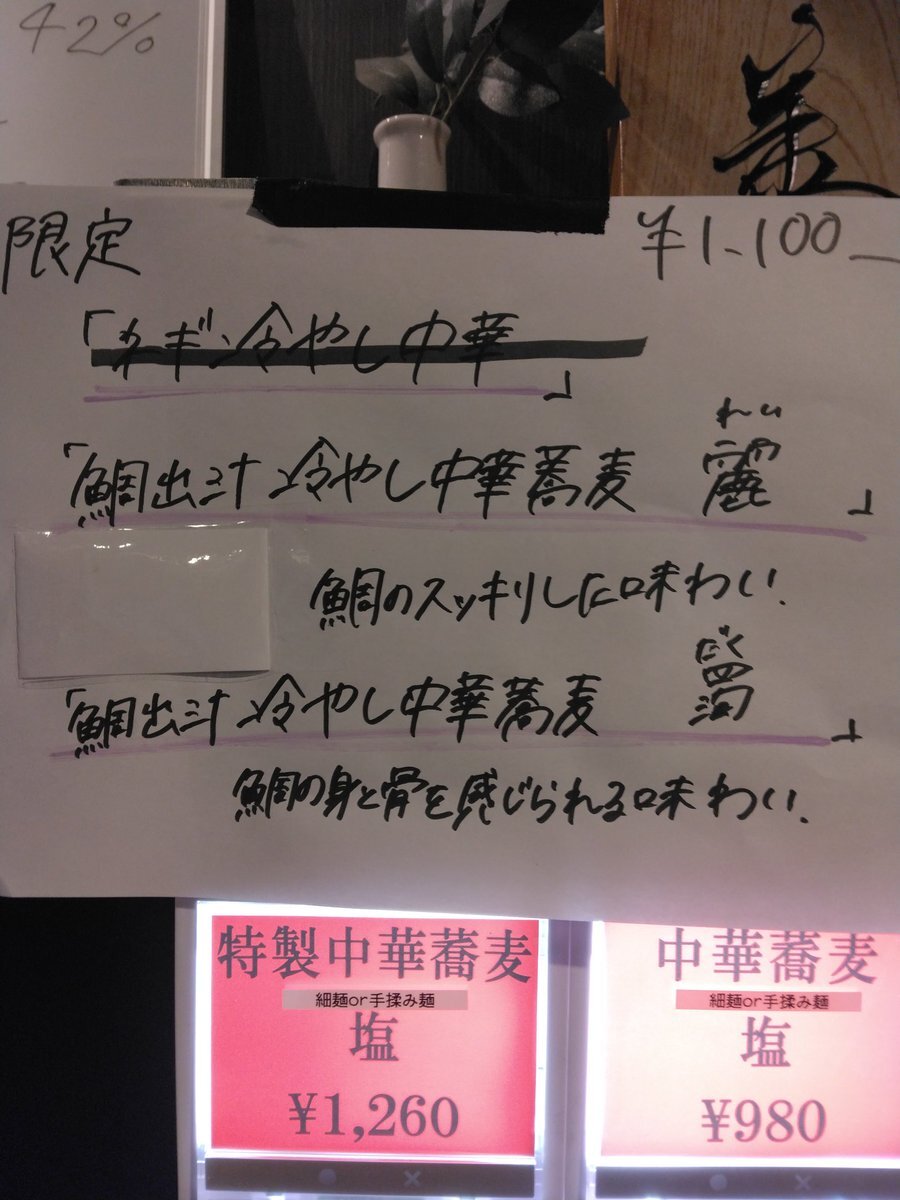 42%
限定
¥1.100
「ネギ冷やし中華」
「鯛出汁冷やし中華蕎麦 麗」
れい
鯛のスッキリした味わい.
「鯛出汁冷やし中華蕎麦 濁」
だく
鯛の身と骨を感じられる味わい.
特製中華蕎麦
細麺or手揉み麺
塩
¥1,260
中華蕎麦
細麺or手揉み麺
塩
¥980